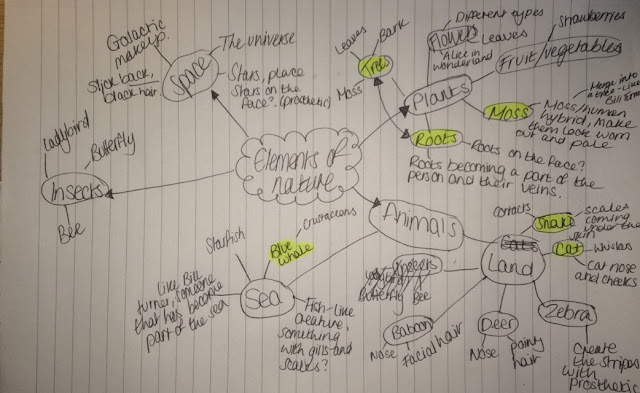 Galactic
makeup.
Slick back,
black hair.
Space
The universe
Stars, place
stars on the
face? (prosthetic)
Leaves
Bark
Trees
Moss
Different types
Flowers
Leaves
Alice in
wonderland
Strawberries
Fruit/vegetables
Plants
Merge into
a tree-like
Bill
Moss
Moss/human
hybrid, make
them look worn
out and pale
Roots
Roots on the face?
Roots becoming a part of the
person and their veins.
Ladybird
Butterfly
Insects
Bee
Elements of
nature
Animals
Starfish
Blue
whale
crustaceans
Sea
like Bill
turner, someone
that has become
part of the sea
Fish-like
creature,
something
with gills and
scales?
Insects
Ladybird
Butterfly
Bee
Cats
Land
contacts
Snake
scales
coming
under the
skin
Cat
whiskers
Cat nose
and cheeks
Baboon
Nose
Facial hair
Deer
Nose
hair
Zebra
Create
the stripes
with
prosthetic